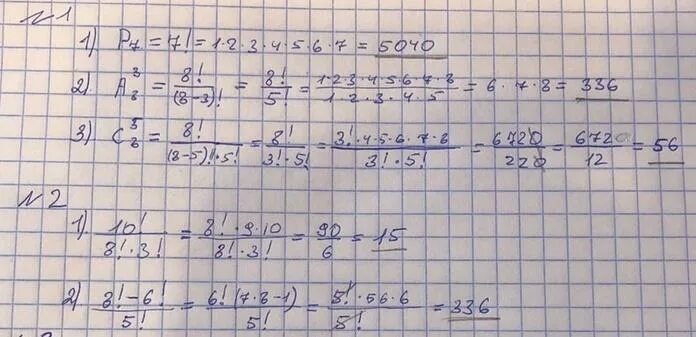 №1
1) P₇ = 7! = 1·2·3·4·5·6·7 = 5040
2) A₈³ = 8!/(8-3)! = 8!/5! = 1·2·3·4·5·6·7·8/1·2·3·4·5 = 6·7·8 = 336
3) C₈⁵ = 8!/(8-5)!·5! = 8!/3!·5! = 3!·4·5·6·7·8/3!·5! = 6720/120 = 672/12 = 56
№2
1) 10!/8!·3! = 8!·9·10/8!·3! = 90/6 = 15
2) 8!-6!/5! = 6!(7·8-1)/5! = 5!·56·6/5! = 336